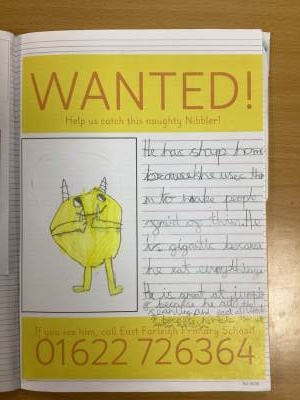 WANTED!
Help us catch this naughty Nibbler!
He has shaps horns
because he uses the
m to make people
afraid of him. He
is gigantic because
he eat everything
He is great at jumping
because he
If you see him, call East Farleigh Primary School!
01622 726364